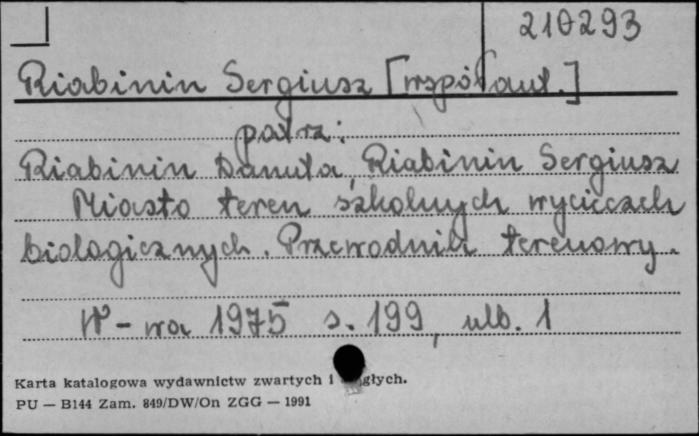 210293
Riabinin Sergiusz [współaut.]
patrz:
Riabinin Danuta, Riabinin Sergiusz
Miasto teren szkolnych wycieczek
biologicznych. Przewodnik terenowy.
W-wa 1975 s. 199, ulb. 1
Karta katalogowa wydawnictw zwartych i głych.
PU — B144 Zam. 849/DW/On ZGG — 1991